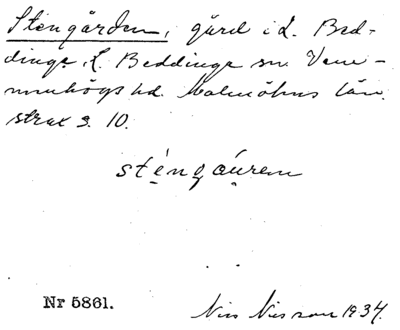 Stengården, gård i L. Bed-
dinge, L. Beddinge sn. Vem-
menhögs hd. Malmöhus län.
strax s. 10.
sténgáurem
Nr 5861.
Nils Nilsson 1934.